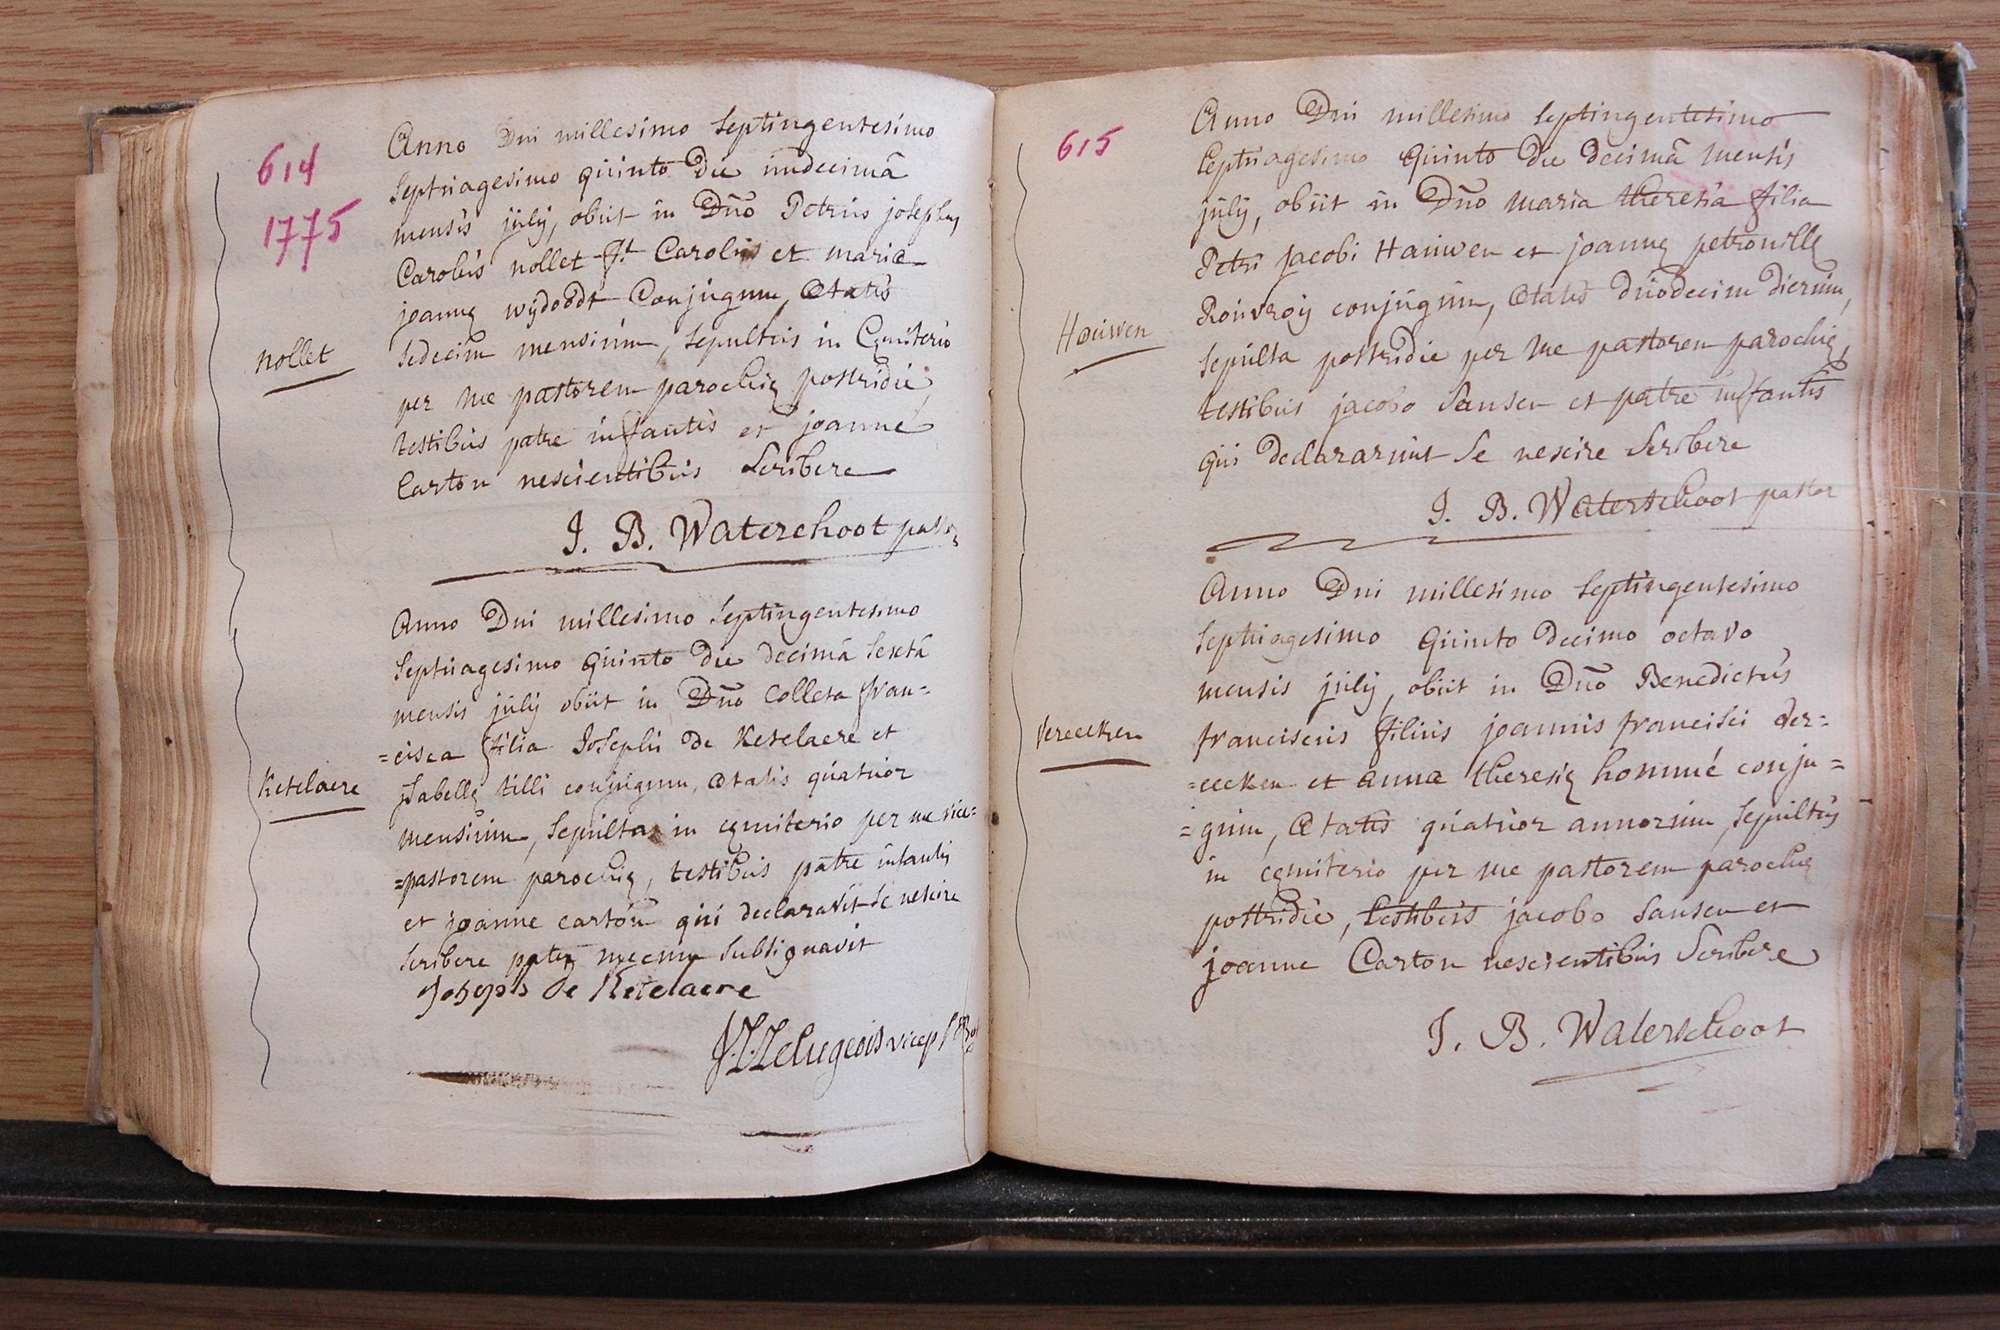 614
1775
Anno Dni millesimo septingentesimo
septuagesimo quinto die undecimā
mensis julÿ, obiit in Dño Petrus josephus
Carolus nollet ft Carolus et mariæ
joannę wÿdoodt Conjugum, Ætatis
sedecim mensium, sepultus in Cęmiterio
nollet
per me pastorem parochię postridie,
testibus patre infantis et joanne
Carton nescientibus scribere
J. B. Waterchoot pastor
Anno Dni millesimo septingentesimo
septuagesimo quinto die decimā sextā
mensis julÿ obiit in Dño Colleta fran=
=cisca filia Josephi de Ketelaere et
isabellę tilli conjugum, ætatis quatuor
Ketelaere
mensium, sepulta in cęmiterio per me vice=
=pastorem parochię, testibus patre infantis
et joanne carton qui declaravit se nescire
scribere pater mecum subsignavit
Joheph de Ketelaere
615
Anno Dni millesimo septingentesimo
septuagesimo quinto die decimā mensis
julÿ, obiit in Dño maria theresia filia
Petri jacobi Hauwen et joannę petronillę
Rouvroÿ conjugum, Ætatis duodecim dierum,
Houwen
sepulta postridie per me pastorem parochię,
testibus jacobo Sansen et patre infantis
qui declararunt se nescire scribere
J. B. Waterschoot pastor
Anno Dni millesimo septingentesimo
septuagesimo quinto decimo octavo
mensis julÿ, obiit in Dño Benedictus
franciscus filius joannis francisci Ver=
Vereecken
=eecken et annæ theresię hommé conju=
=gum, Ætatis quatuor annorum, sepultus
in cęmiterio per me pastorem parochię
postridie, testibus jacobo Sansen et
joanne Carton nescientibus scribere
J. B. Waterschoot